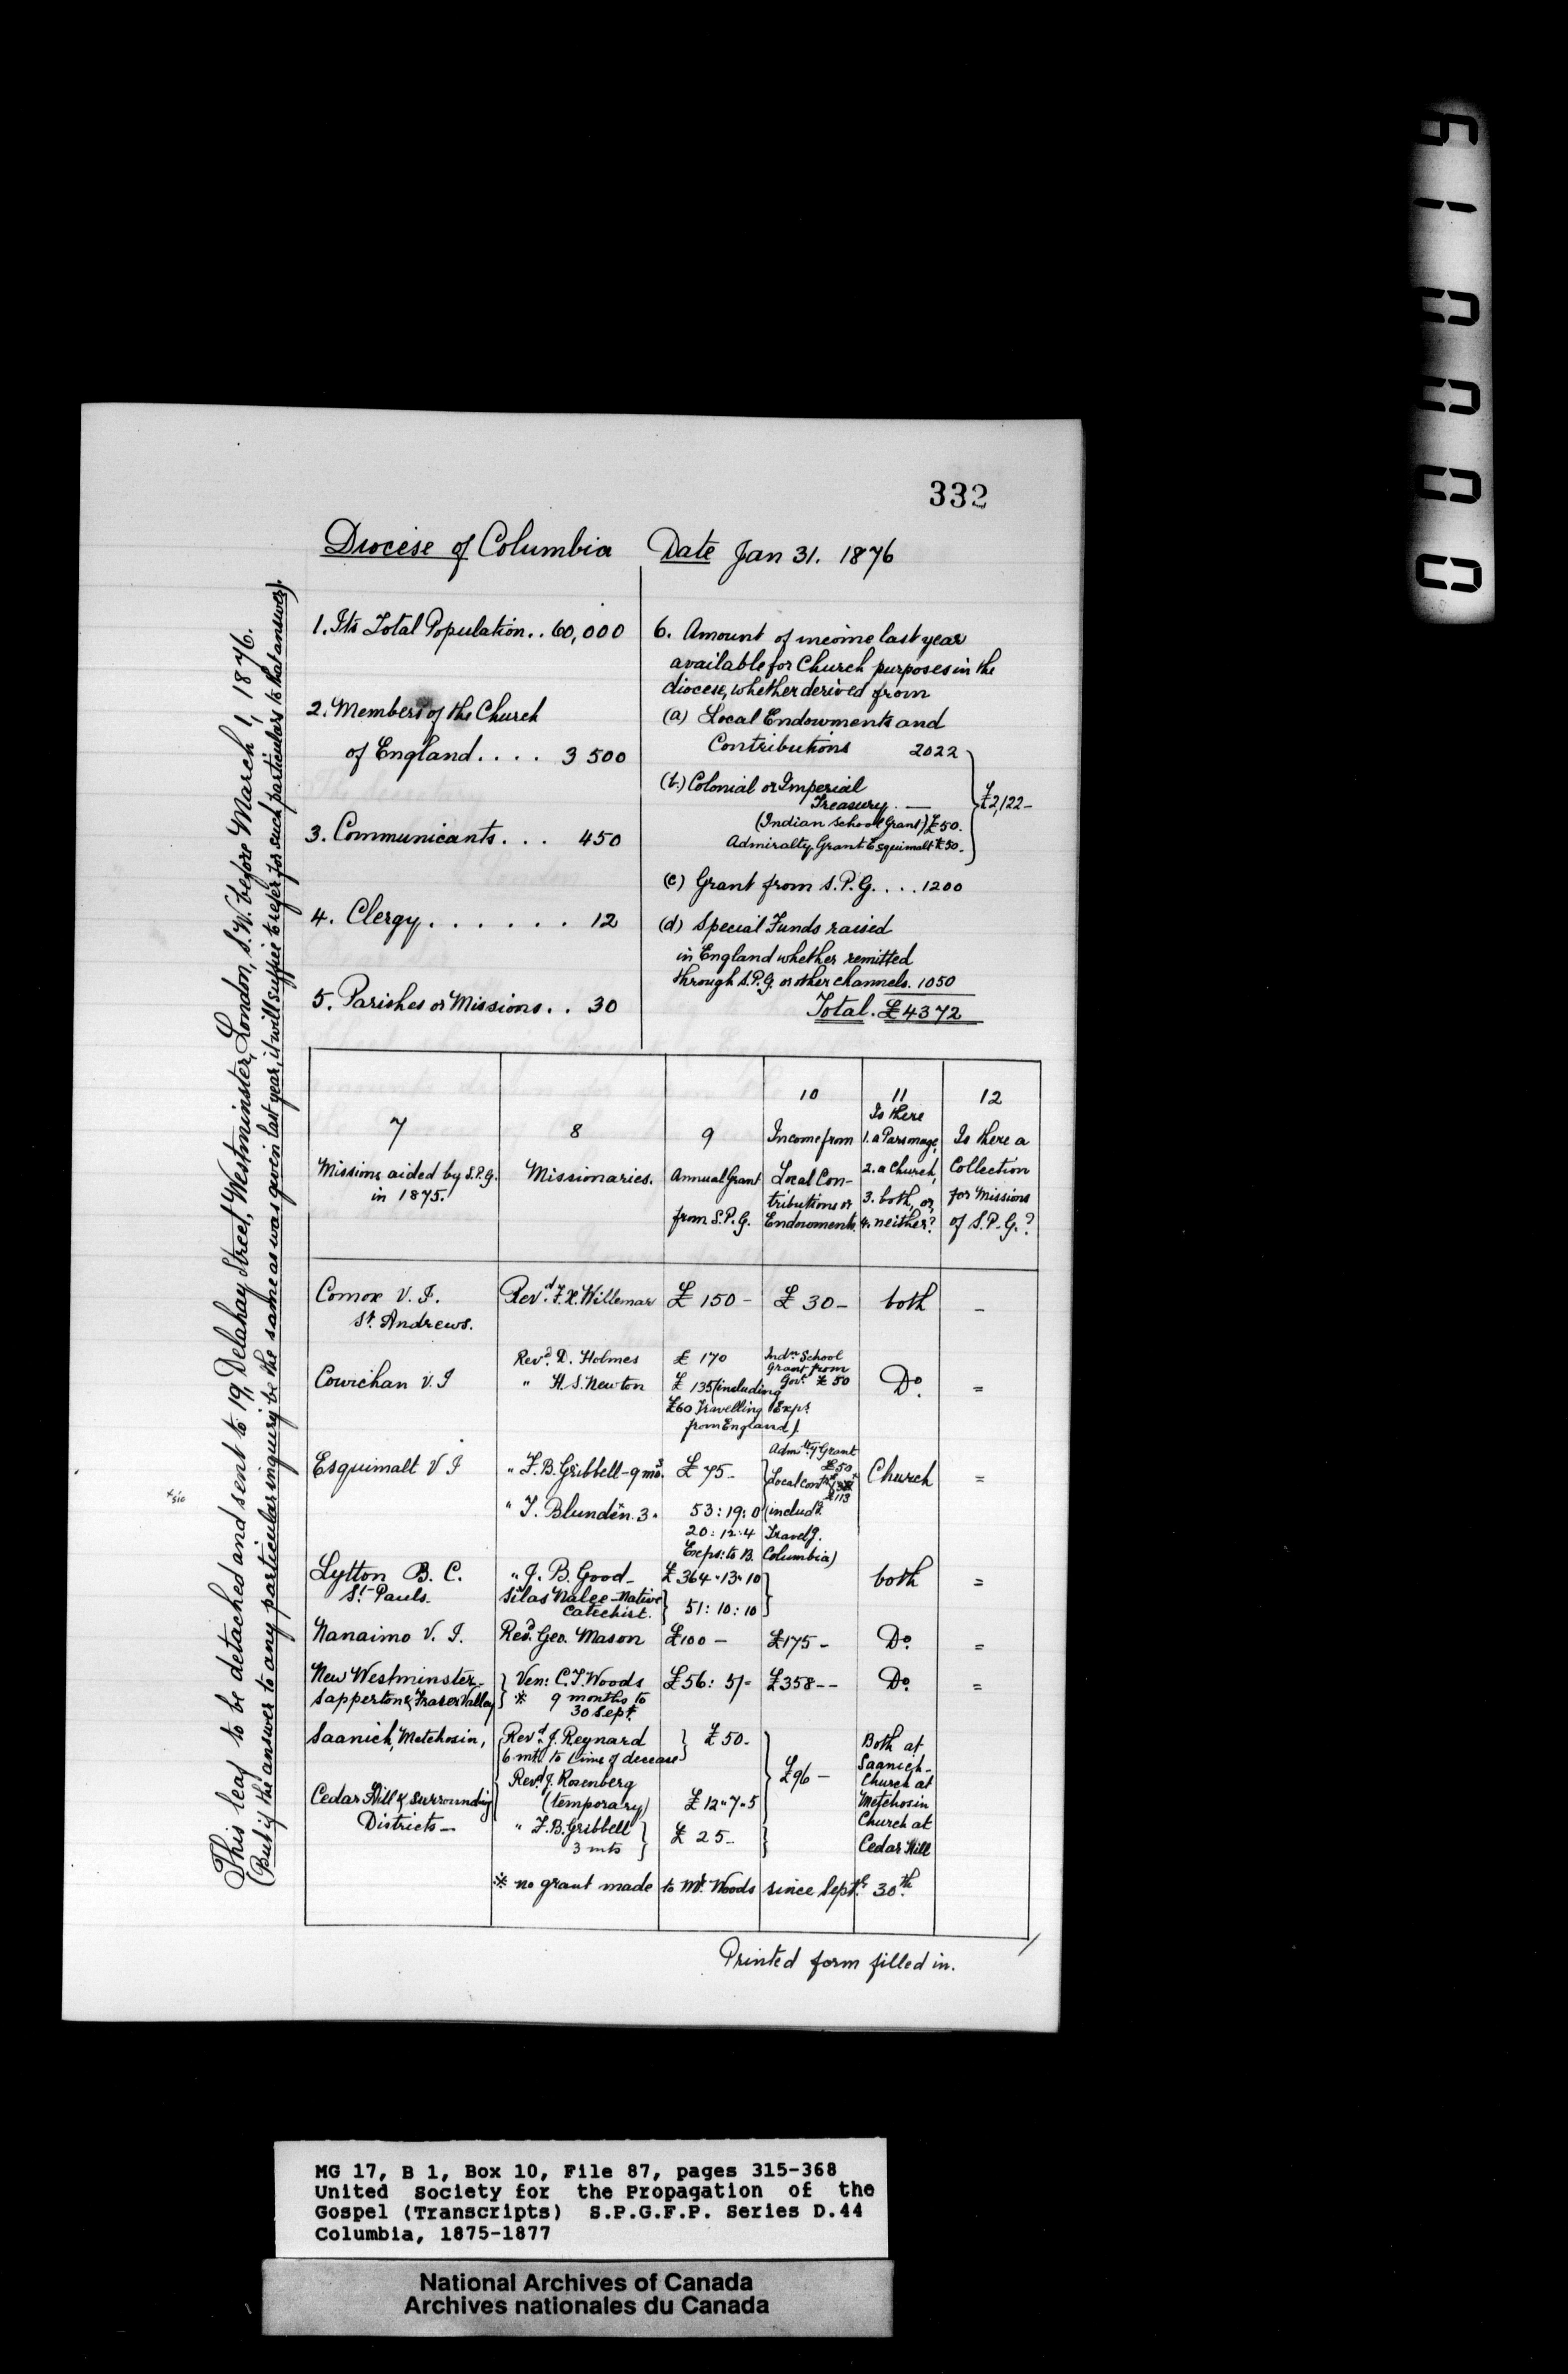 332
Diocese of Columbia Date Jan 31. 1876
1. Its Total Population.. 60,000
2. Members of the Church
of England.... 3 500
3. Communicants... 450
4. Clergy....... 12
5. Parishes or Missions.. 30
6. Amount of income last year
available for Church purposes in the
diocese, whether derived from
(a) Local Endowments and
Contributions 2022
(b.) Colonial or Imperial
Treasury. —
(Indian School Grant) £50.
Admiralty Grant Esquimalt £50.
£2,122—
(c) Grant from S.P.G.... 1200
(d) Special Funds raised
in England whether remitted
through S.P.G. or other channels. 1050
Total. £4372
7
Missions aided by S.P.G.
in 1875.
8
Missionaries.
9
Annual Grant
from S.P.G.
10
Income from
Local Con-
tributions or
Endowments.
11
Is there
1. a Parsonage,
2. a Church,
3. both, or,
4. neither?
12
Is there a
Collection
for Missions
of S.P.G.?
Comox V. I. Revd. F.X. Willemar £ 150 - £ 30 - both -
St. Andrews.
Cowichan V. I Revd. D. Holmes £ 170 Indn. School
Grant from
Govt. £ 50 Do. =
" H. S. Newton £ 135 (including
£60 Travelling Exps.
from England).
Esquimalt V I " F.B. Gribbell - 9 mos. £ 75 - Admlty Grant
£50
Local Cont
£113 Church =
" T. Blunden x 3 " 53 : 19 : 0 (includg.
20 : 12 : 4 Travelg.
Exps: to B. Columbia)
Lytton B. C. " J. B. Good - £ 364 " 13 " 10 both =
St. Pauls. Silas Nalee - Native
Catechist. 51 : 10 : 10
Nanaimo V. I. Revd. Geo. Mason £100 - £175 - Do. =
New Westminster - Ven: C.T. Woods £56 : 5/- £358 -- Do. =
Sapperton & Fraser Valley ※ 9 months to
30 Sept.
Saanich, Metchosin, Revd. J. Reynard £50 -
6 mths to time of decease
Revd. J. Rosenberg £96 -
Cedar Hill & Surrounding (temporary) £ 12 " 7 " 5
Districts — " F.B. Gribbell £ 25 -
3 mts
Both at
Saanich -
Church at
Metchosin
Church at
Cedar Hill
※ no grant made to Mr. Woods since Septr. 30th.
Printed form filled in.
This leaf to be detached and sent to 19, Delahay Street, Westminster, London, S.W. before March 1, 1876.
(But if the answer to any particular inquiry be the same as was given last year, it will suffice to refer for such particulars to that answer).
x sic
MG 17, B 1, Box 10, File 87, pages 315-368
United Society for the Propagation of the
Gospel (Transcripts) S.P.G.F.P. Series D.44
Columbia, 1875-1877
National Archives of Canada
Archives nationales du Canada